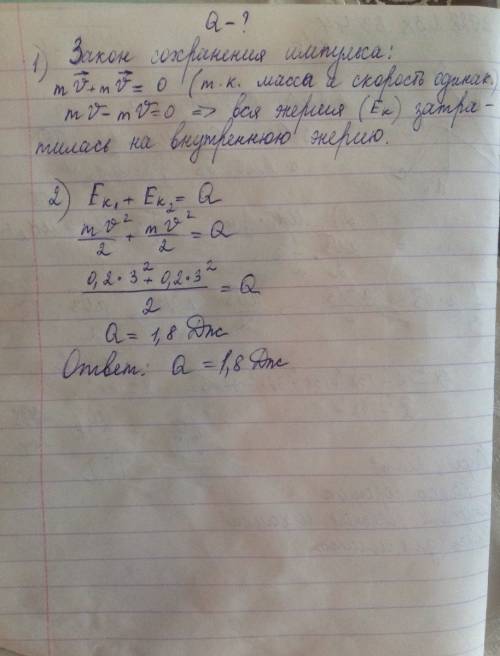 Q - ?
1) Закон сохранения импульса:
mv⃗ + mv⃗ = 0 (т.к. масса и скорость одинак.)
mv - mv = 0 => вся энергия (Eк) затра-
тилась на внутреннюю энергию.
2) Eк₁ + Eк₂ = Q
mv²/2 + mv²/2 = Q
(0,2·3² + 0,2·3²)/2 = Q
Q = 1,8 Дж
Ответ: Q = 1,8 Дж